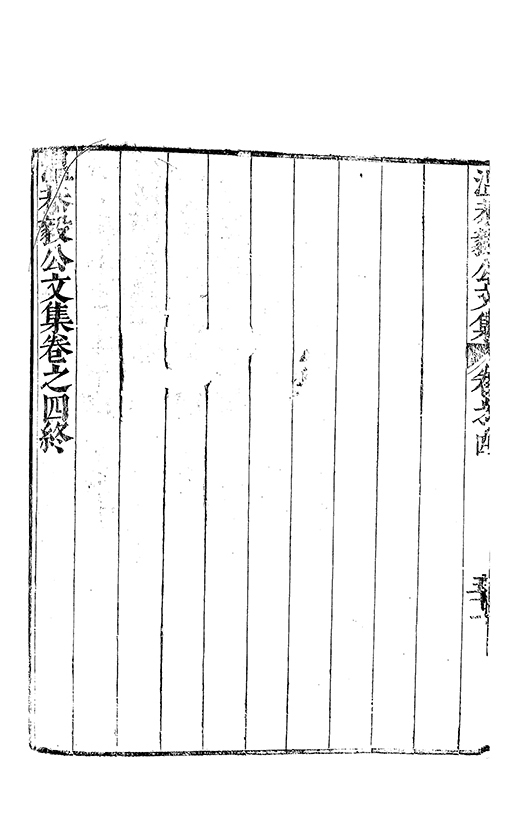 溫恭毅公文集 卷之四
溫恭毅公文集卷之四終